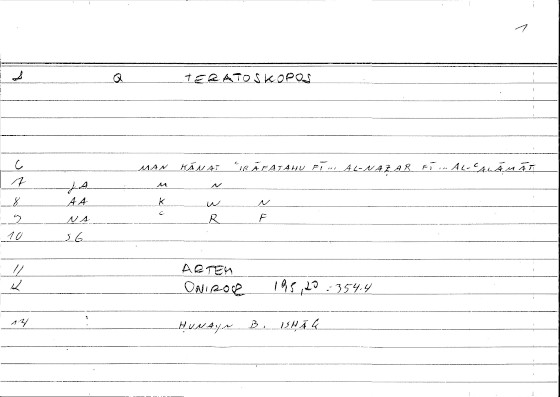 1
Q TERATOSKOPOS
6 MAN KĀNAT ʿIRĀFATAHU FĪ... AL-NAẒAR FĪ... AL-ʿALĀMĀT
7 JA M N
8 AA K W N
9 NA ʿ R F
10 SG
11 ARTEM
12 ONIROS 195,20 : 354.4
14 : ḤUNAYN B. ISḤĀQ